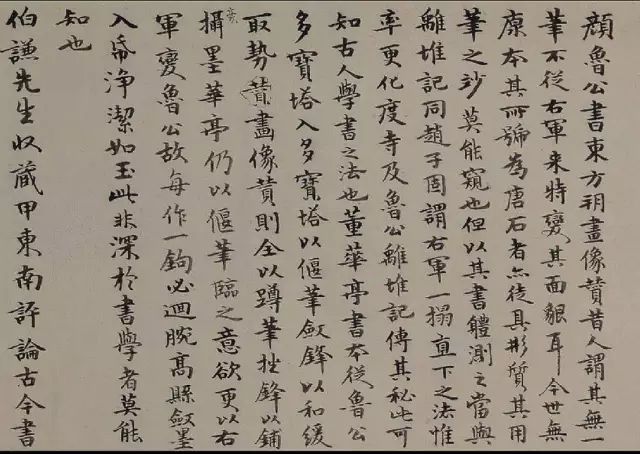 顔魯公書東方朔畫像贊昔人謂其無一
筆不從右軍来特變其面貌耳今世無
原本其所號為唐石者亦徒具形質其用
筆之妙莫能窺也但以其書體測之當與
離堆記同趙子固謂右軍一搨直下之法惟
率更化度寺及魯公離堆記傳其秘此可
知古人學書之法也董華亭書本從魯公
多寶塔入多寶塔以偃筆斂鋒以和緩
取勢贊畫像贊則全以蹲筆挫鋒以鋪
毫攝墨華亭仍以偃筆臨之意欲更以右
軍變魯公故每作一鉤必迴腕高懸斂墨
入帋淨潔如玉此非深於書學者莫能
知也
伯謙先生収蔵甲東南評論古今書